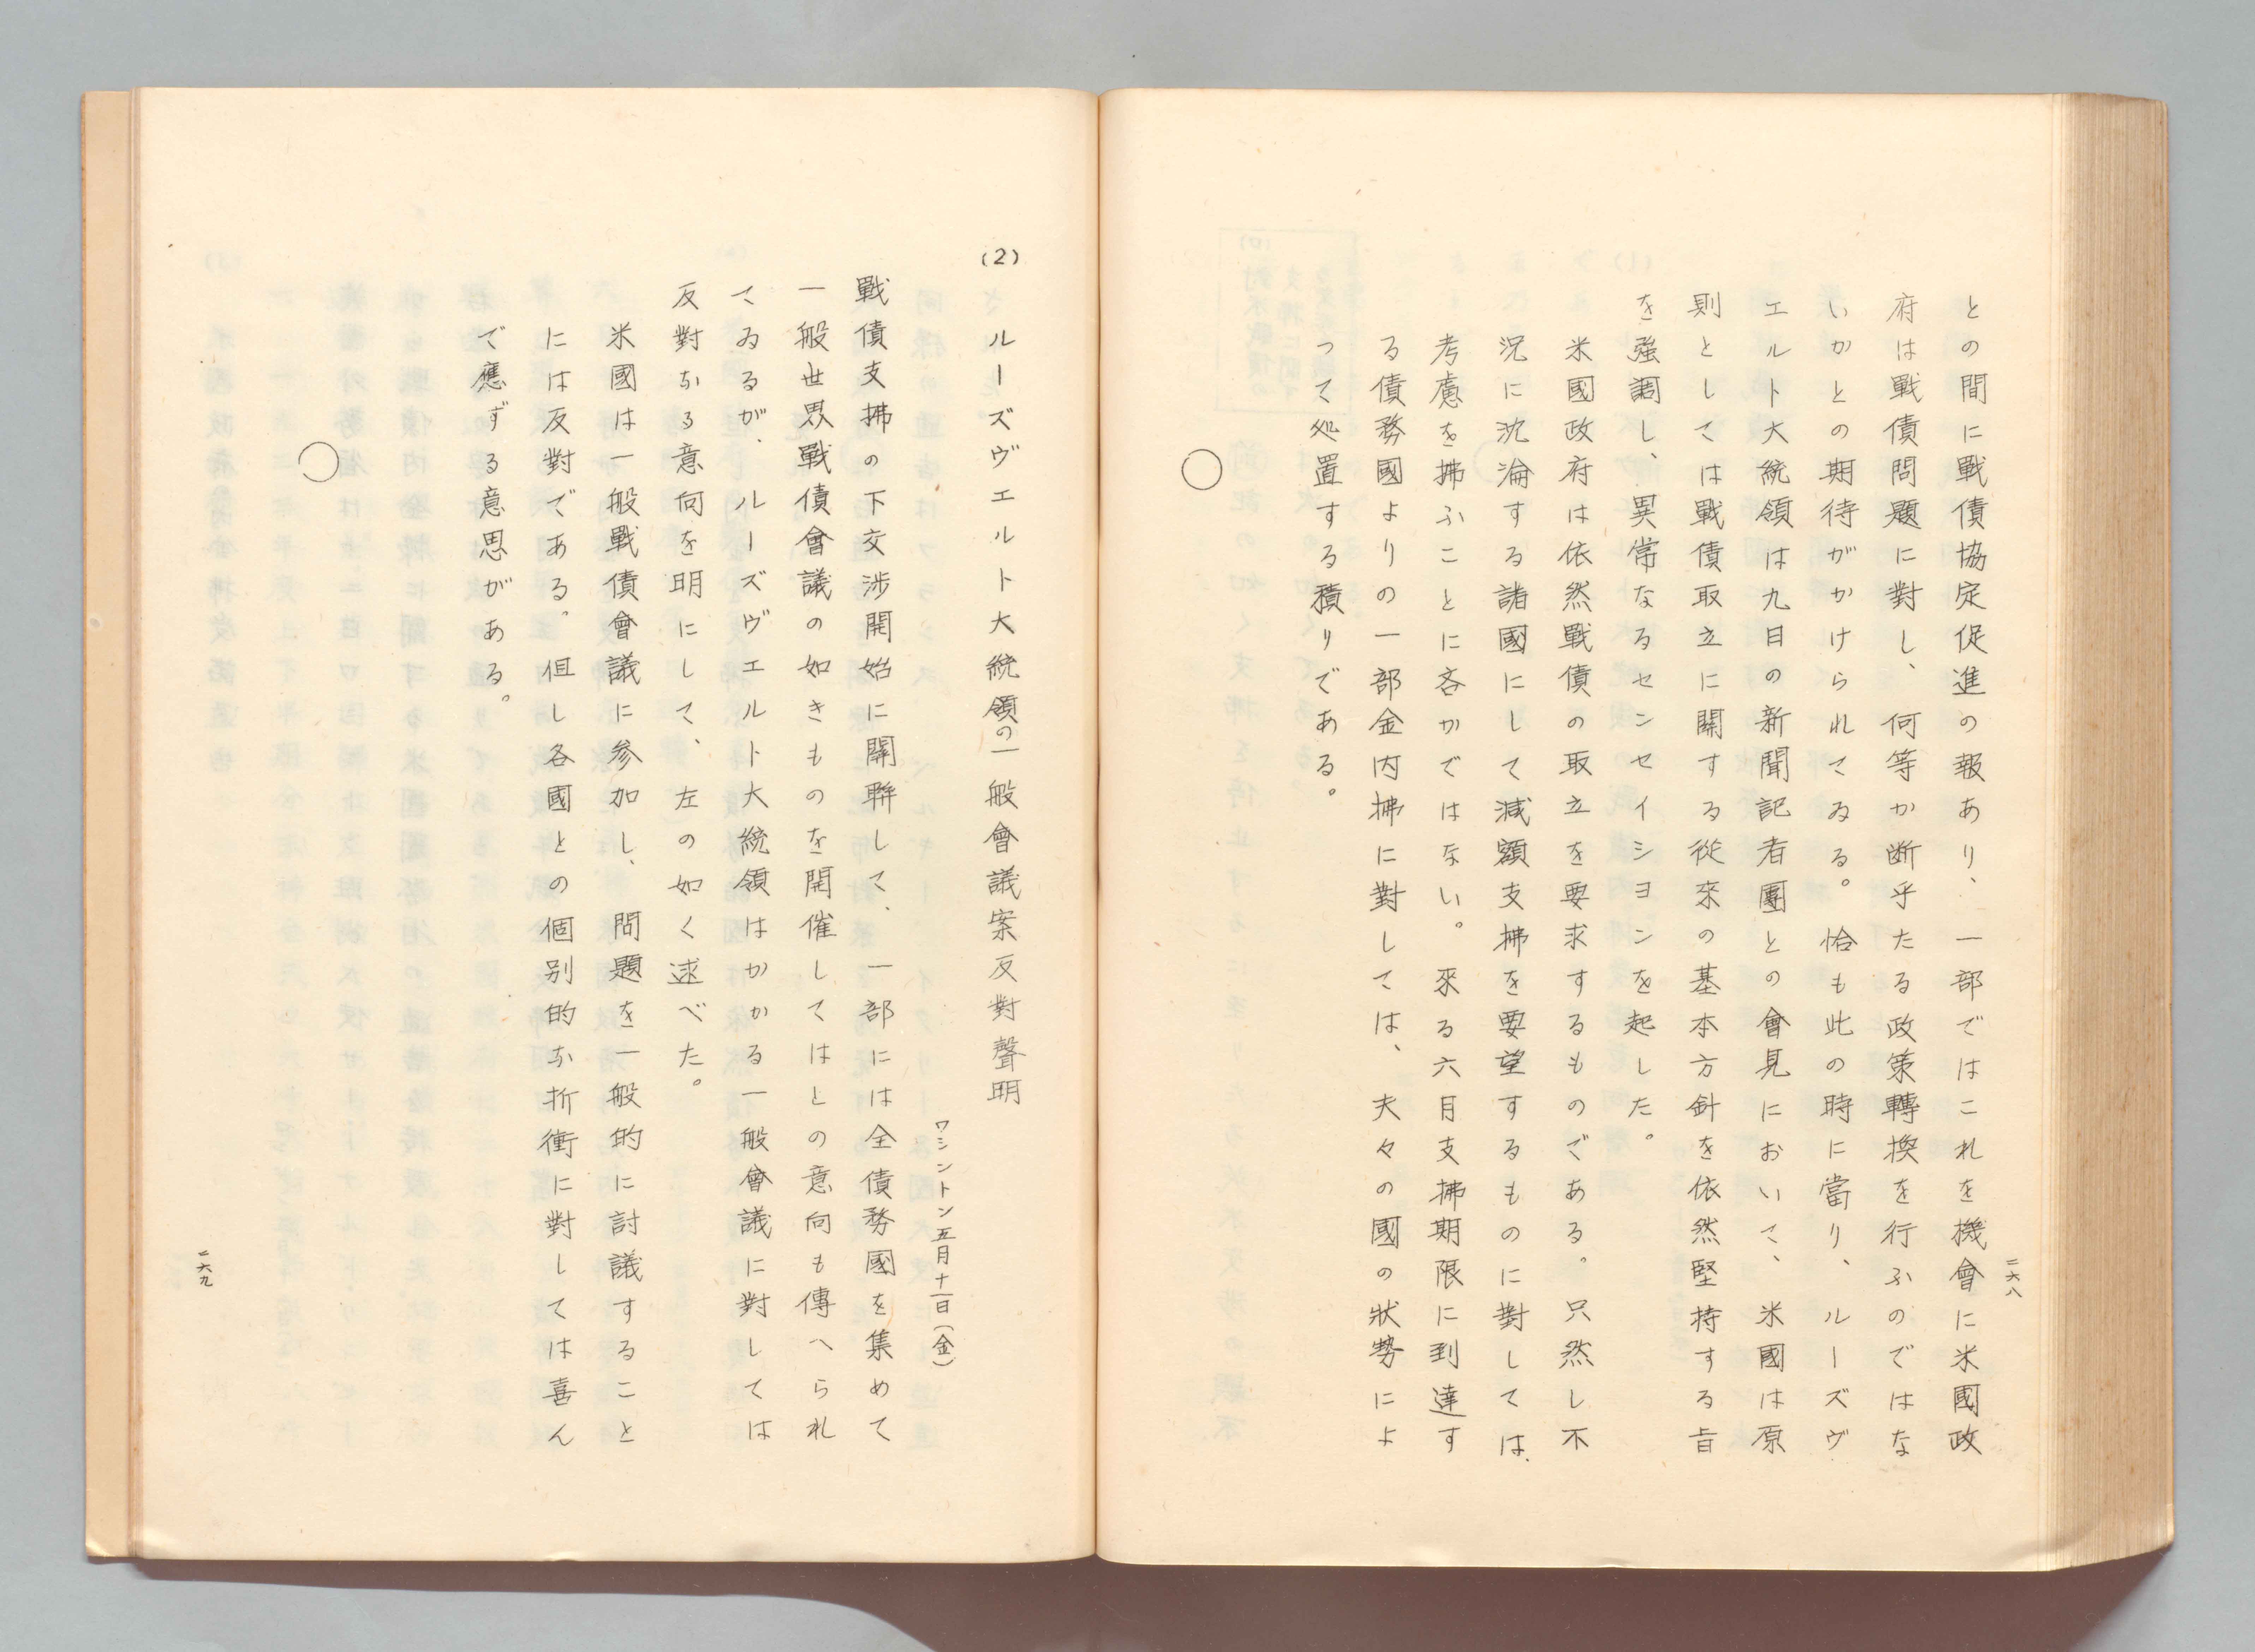 二六八
との間に戰債協定促進の報あり、一部ではこれを機會に米國政
府は戰債問題に對し、何等か断乎たる政策轉換を行ふのではな
いかとの期待がかけられてゐる。恰も此の時に當り、ルーズヴ
エルト大統領は九日の新聞記者團との會見において、米國は原
則としては戰債取立に關する從來の基本方針を依然堅持する旨
を強調し、異常なるセンセイシヨンを起した。
米國政府は依然戰債の取立を要求するものである。只然し不
況に沈淪する諸國にして減額支拂を要望するものに對しては、
考慮を拂ふことに吝かではない。來る六月支拂期限に到達す
る債務國よりの一部金内拂に對しては、夫々の國の狀勢によ
って処置する積りである。
○
(2)
ルーズヴエルト大統領の一般會議案反對聲明
ワシントン五月十一日(金)
戰債支拂の下交渉開始に關聯して、一部には全債務國を集めて
一般世界戰債會議の如きものを開催してはとの意向も傳へられ
てゐるが、ルーズヴエルト大統領はかかる一般會議に對しては
反對なる意向を明にして、左の如く述べた。
米國は一般戰債會議に参加し、問題を一般的に討議すること
には反對である。但し各國との個別的な折衝に對しては喜ん
で應ずる意思がある。
○
二六九